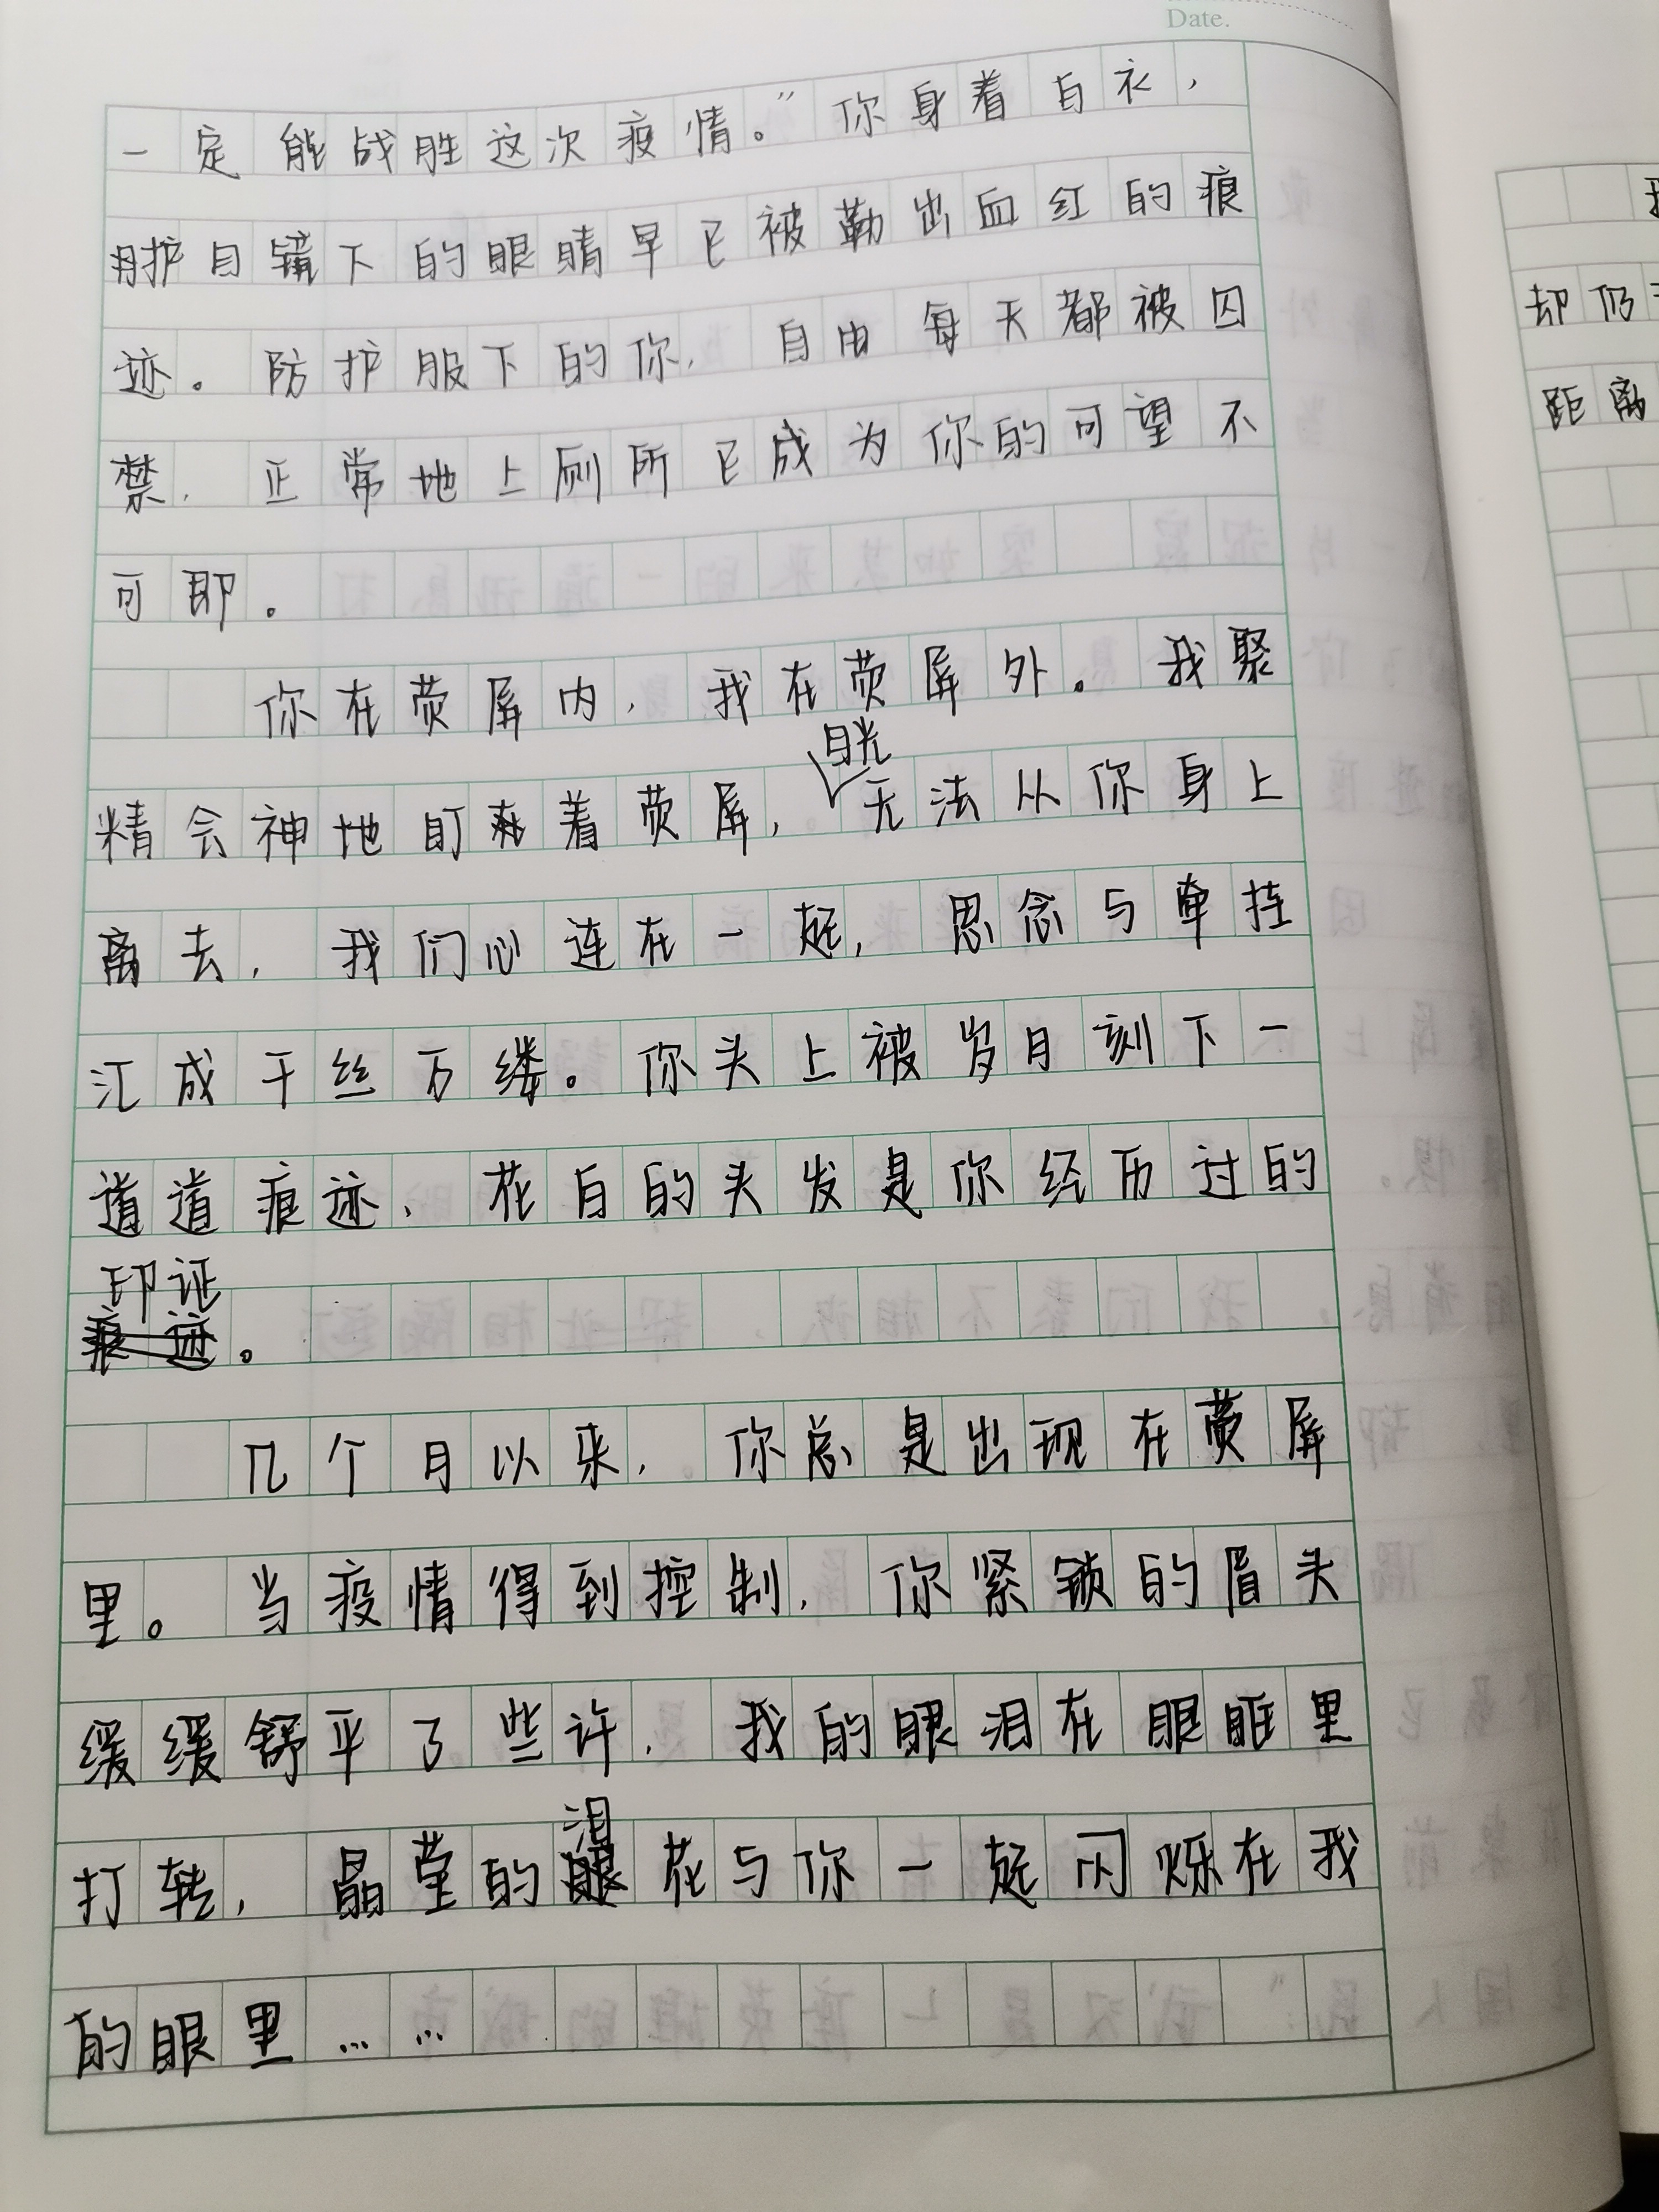 Date.
一定能战胜这次疫情。”你身着白衣，
护目镜下的眼睛早已被勒出血红的痕
迹。防护服下的你，自由每天都被囚
禁，正常地上厕所已成为你的可望不
可即。
你在荧屏内，我在荧屏外。我聚
目光
精会神地盯着荧屏，无法从你身上
离去，我们心连在一起，思念与牵挂
汇成千丝万缕。你头上被岁月刻下一
道道痕迹，花白的头发是你经历过的
印证
痕迹。
几个月以来，你总是出现在荧屏
里。当疫情得到控制，你紧锁的眉头
缓缓舒平了些许，我的眼泪在眼眶里
泪
打转，晶莹的眼花与你一起闪烁在我
的眼里……
却仍
距离